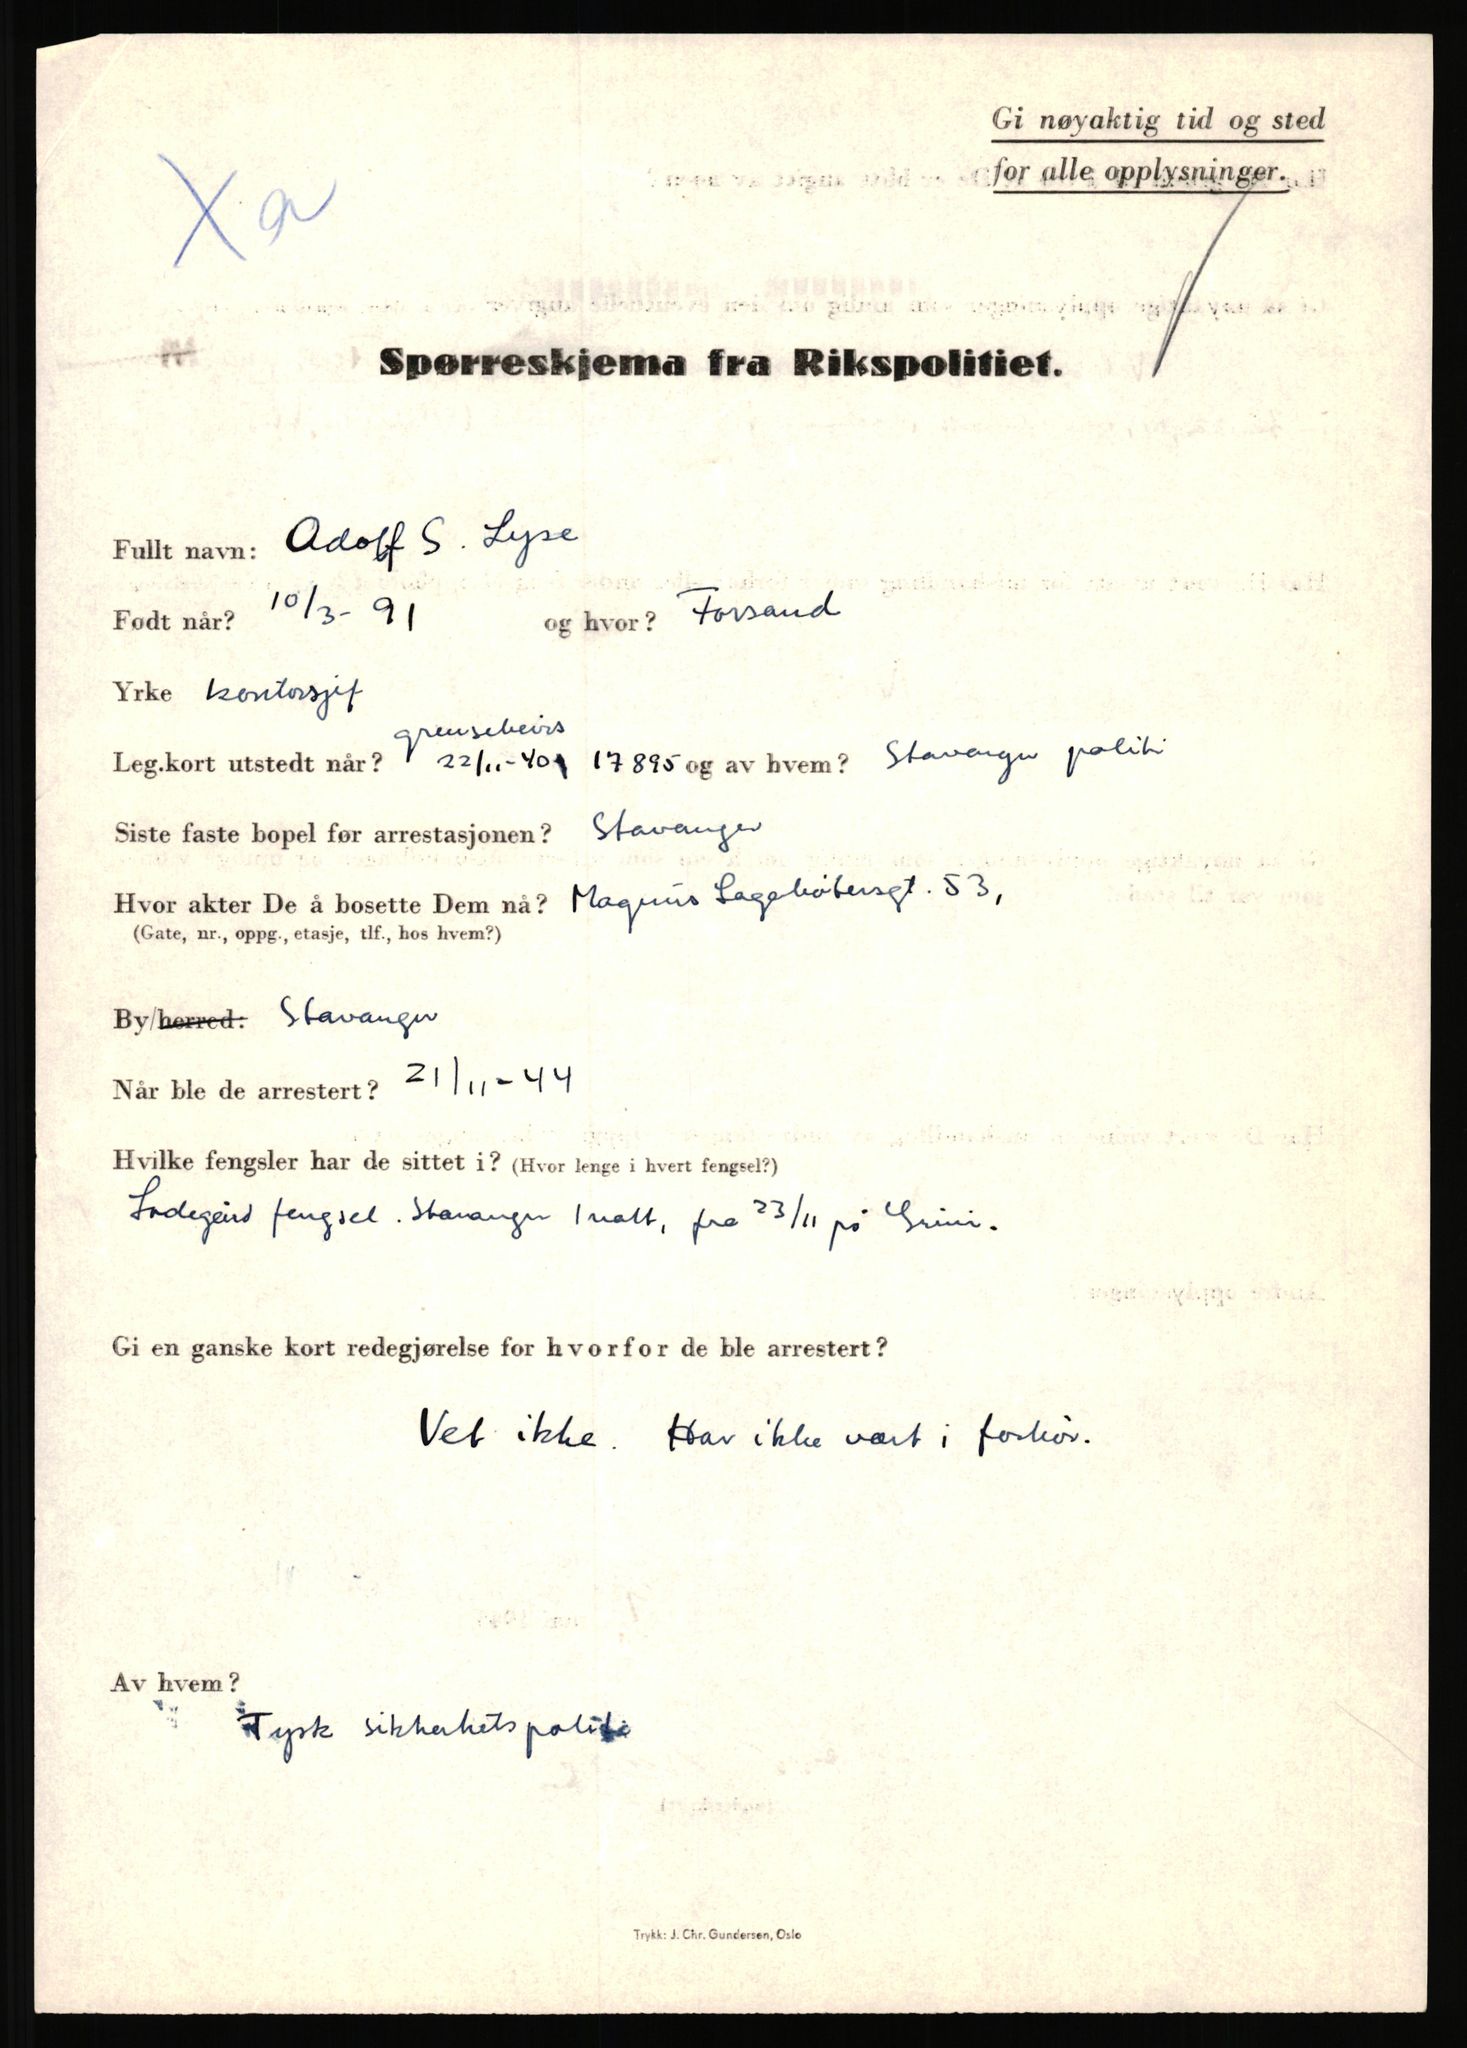 Gi nøyaktig tid og sted
for alle opplysninger.
X a
Spørreskjema fra Rikspolitiet.
Fullt navn: Adolf S. Lyse
Født når? 10/3- 91 og hvor? Forsand
Yrke kontorsjef
grensebevis
Leg.kort utstedt når? 22/11-40 17895 og av hvem? Stavanger politi
Siste faste bopel før arrestasjonen? Stavanger
Hvor akter De å bosette Dem nå? Magnus Lagabøtersgt. 53,
(Gate, nr., oppg., etasje, tlf., hos hvem?)
By/herred: Stavanger
Når ble de arrestert? 21/11-44
Hvilke fengsler har de sittet i? (Hvor lenge i hvert fengsel?)
Ladegård fengsel. Stavanger 1 natt, fra 23/11 på Grini.
Gi en ganske kort redegjørelse for hvorfor de ble arrestert?
Vet ikke. Har ikke vært i forhør.
Av hvem?
Tysk sikkerhetspoliti
Trykk: J. Chr. Gundersen, Oslo